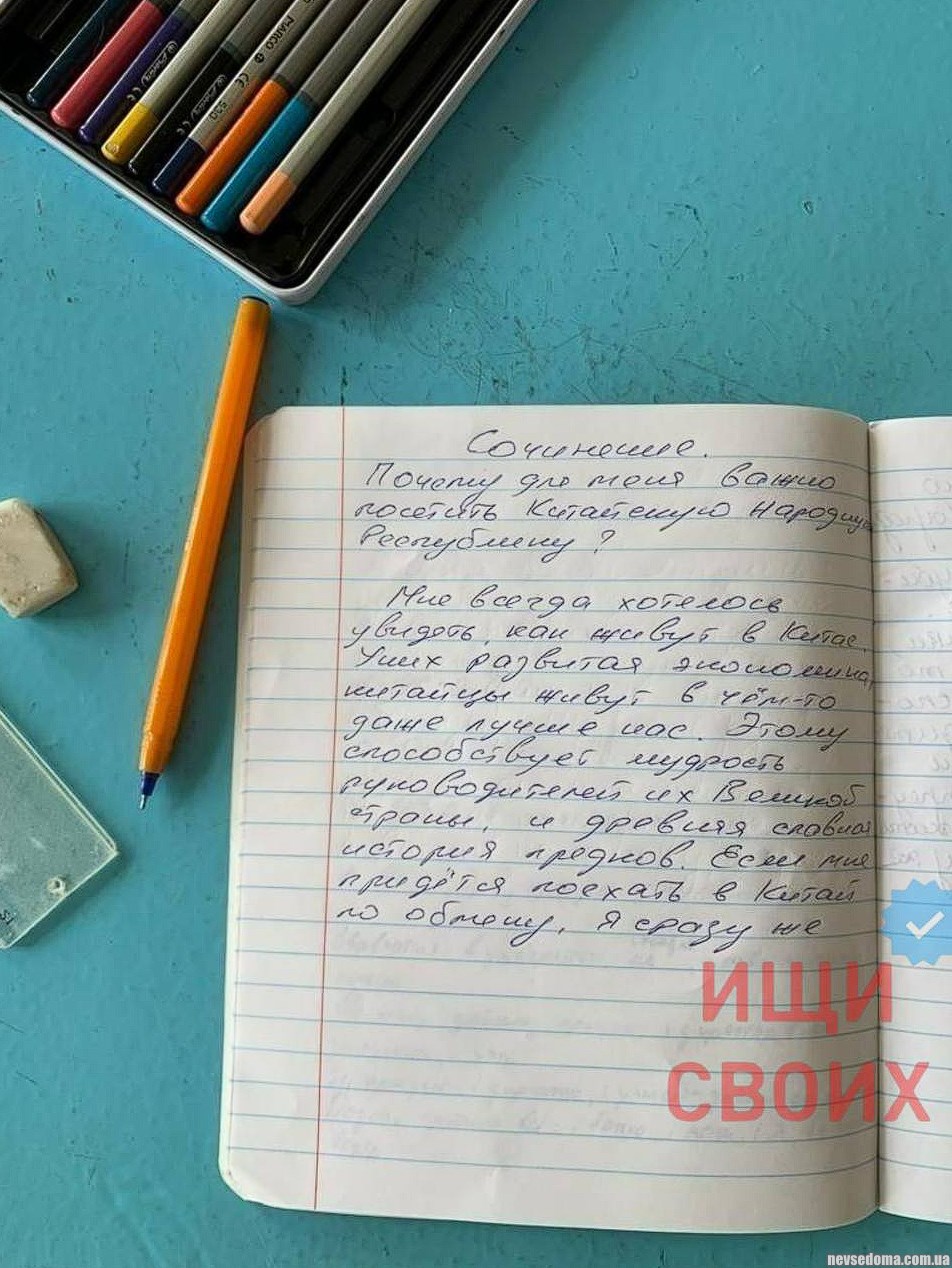 MARCO
CE
Сочинение.
Почему для меня важно
посетить Китайскую Народную
Республику?
Мне всегда хотелось
увидеть, как живут в Китае.
У них развитая экономика,
китайцы живут в чём-то
даже лучше нас. Этому
способствует мудрость
руководителей их Великой
страны, и древняя славная
история предков. Если мне
придётся поехать в Китай
по обмену, я сразу же
ИЩИ
СВОИХ
nevsedoma.com.ua